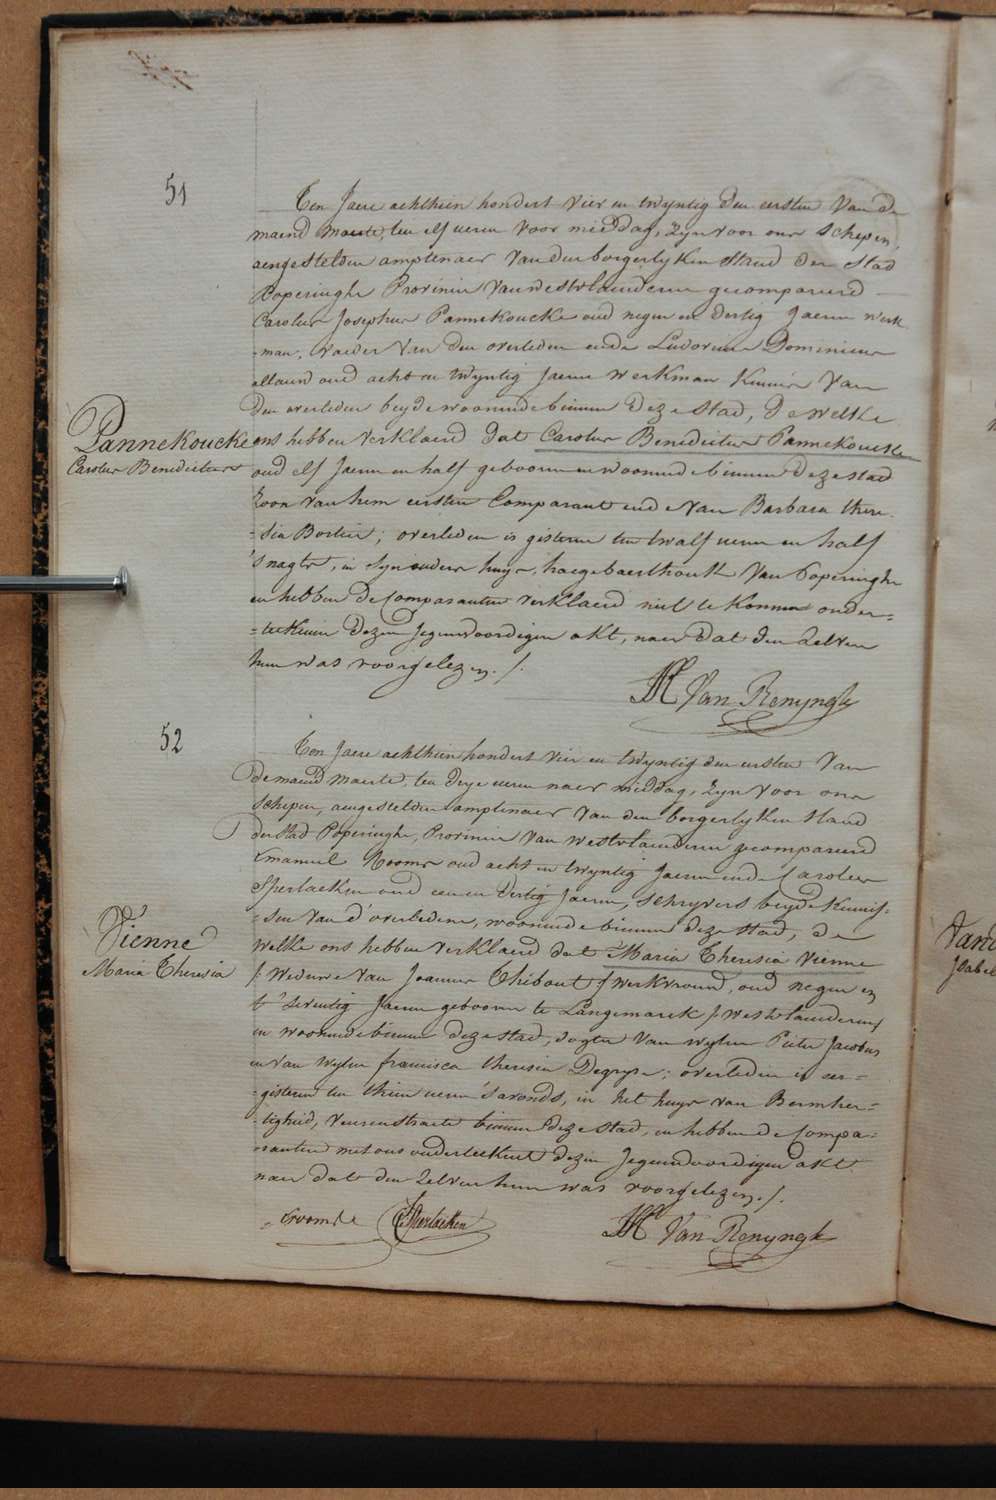 51
Ten Jaere achthien hondert vier en twyntig den eersten van de
maend maerte, ten elf ueren voor middag, zyn voor ons schepen,
aengestelden amptenaer van den borgerlyken stand der stad
Poperinghe Provincie van westvlaenderen gecompareerd
Carolus Josephus Pannekoucke oud negen en dertig Jaeren werk
-man, vaeder van den overleden ende Ludovicus Dominicus
allaerd oud acht en twyntig Jaeren werkman kennis van
den overleden beyde woonende binnen deze stad, de welke
Pannekoucke
Carolus Benedictus
ons hebben verklaerd dat Carolus Benedictus Pannekoucke
oud elf Jaeren en half gebooren en woonende binnen deze stad
zoon van hem eersten Comparant ende van Barbara there-
-sia Bortier; overleden is gisteren ten twalf ueren en half
's nagts, in syn ouders huys, haegebaerthoek van Poperinghe
en hebben de Comparanten verklaerd niet te konnen onder-
-teekenen dezen Jegenwoordigen akt, naer dat den zelven
hun was voorgelezen ./.
Van Renynghe
52
Ten Jaere achthien hondert vier en twyntig den eersten van
de maend maerte, ten drye ueren naer middag, zyn voor ons
schepen, aengestelden amptenaer van den borgerlyken stand
der stad Poperinghe, Provincie van westvlaenderen gecompareerd
Emanuel Rooms oud acht en twyntig Jaeren ende Carolus
Sperlaeken oud een en dertig Jaeren, schryvers beyde kennis-
-sen van d'overledene, woonende binnen deze stad, de
Vienne
Maria Theresia
welke ons hebben verklaerd dat Maria Theresia Vienne
/: Weduwe van Joannes Thibout :/ werkvrouw, oud negen en
t'seventig Jaeren gebooren te Langemarck /: westvlaenderen :/
en woonende binnen deze stad, dogter van wylen Pieter Jacobus
en van wylen francisca theresia Degryse; overleden is eer-
-gisteren ten thien ueren 's avonds, in het huys van Bermher-
-tigheid, veurenstraete binnen deze stad, en hebben de Compa-
-ranten met ons onderteekent dezen Jegenwoordigen akt.
naer dat den zelven hun was voorgelezen ./.
E rooms C Sperlaeken Van Renynghe